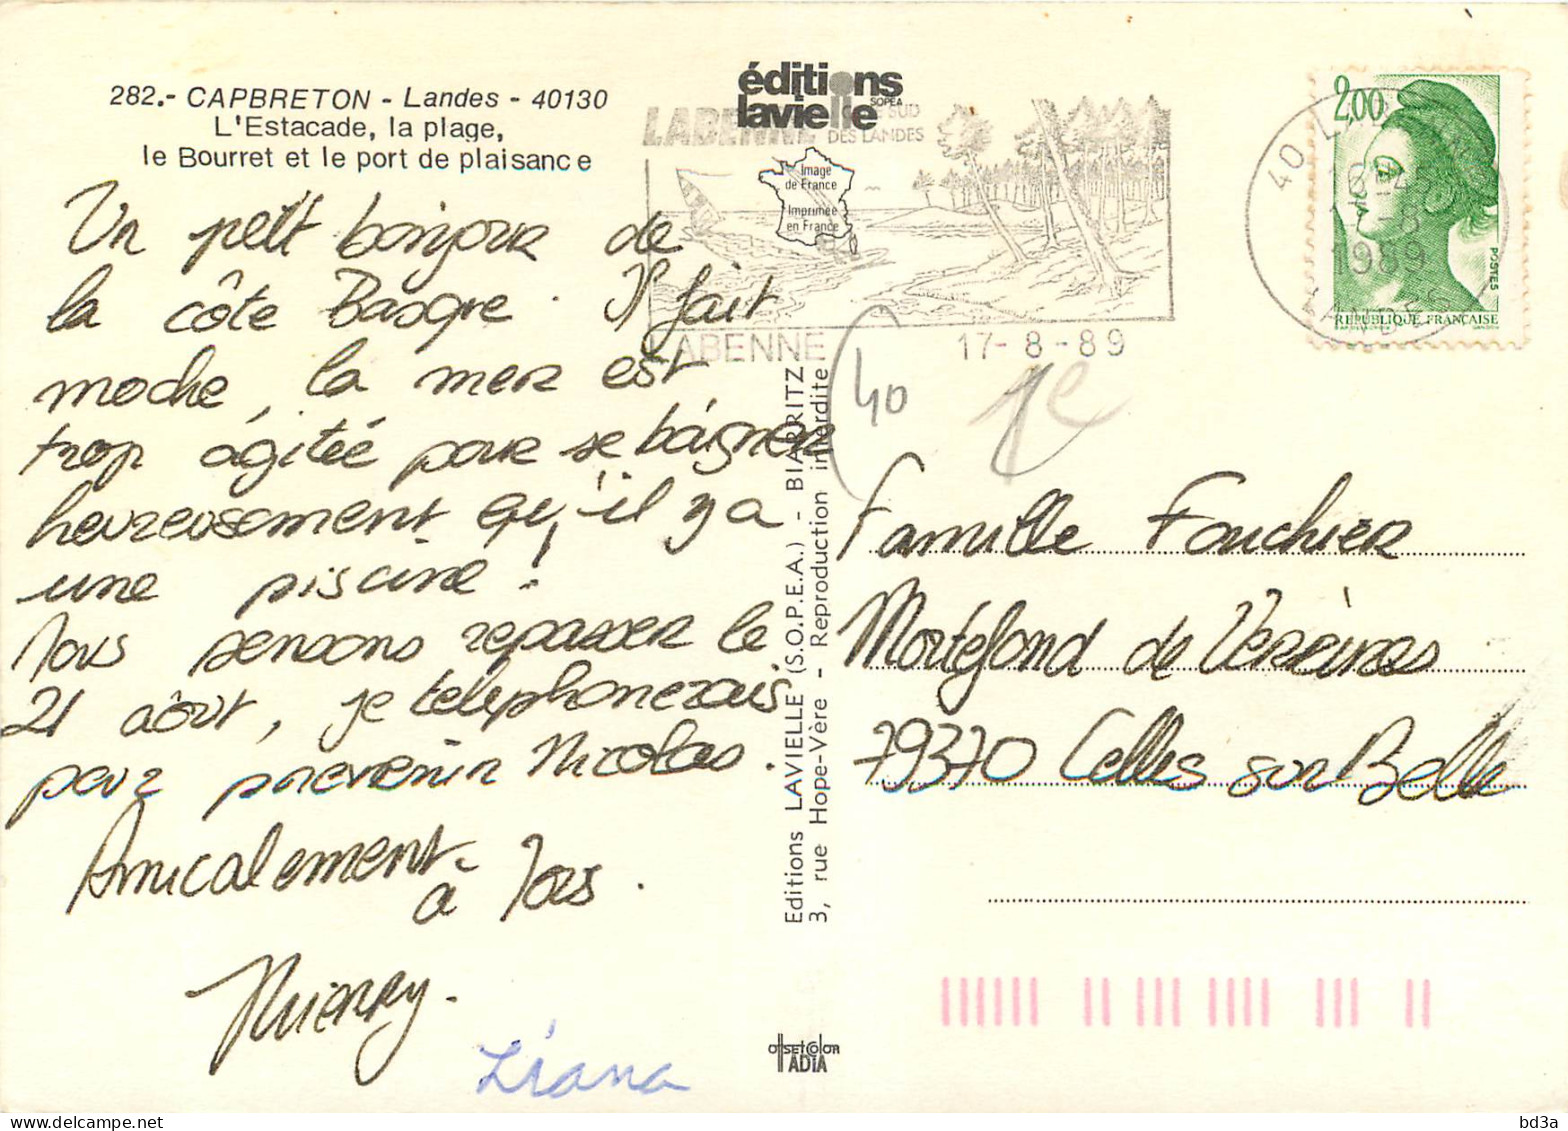 282.- CAPBRETON - Landes - 40130
L'Estacade, la plage,
le Bourret et le port de plaisance
éditions
lavielle
SOPEA
LABENNE
SUD
DES LANDES
Image
de France
Imprimée
en France
LABENNE
17-8-89
2,00
POSTES
REPUBLIQUE FRANÇAISE
40
1989
LANDES
Un petit bonjour de
la côte Basque. Il fait
moche, la mer est
trop agitée pour se baigner
heureusement qu'il y a
une piscine!
Nous pensons repasser le
21 août, je téléphonerais
pour prévenir Nicolas.
Amicalement
à Tous.
Thierry.
Liana
(40
1e
Editions LAVIELLE (S.O.P.E.A.) - BIARRITZ
3, rue Hope-Vère - Reproduction interdite
Famille Fouchier
Mortefond de Verrines
79370 Celles sur Belle
offset color
ADIA
bd3a